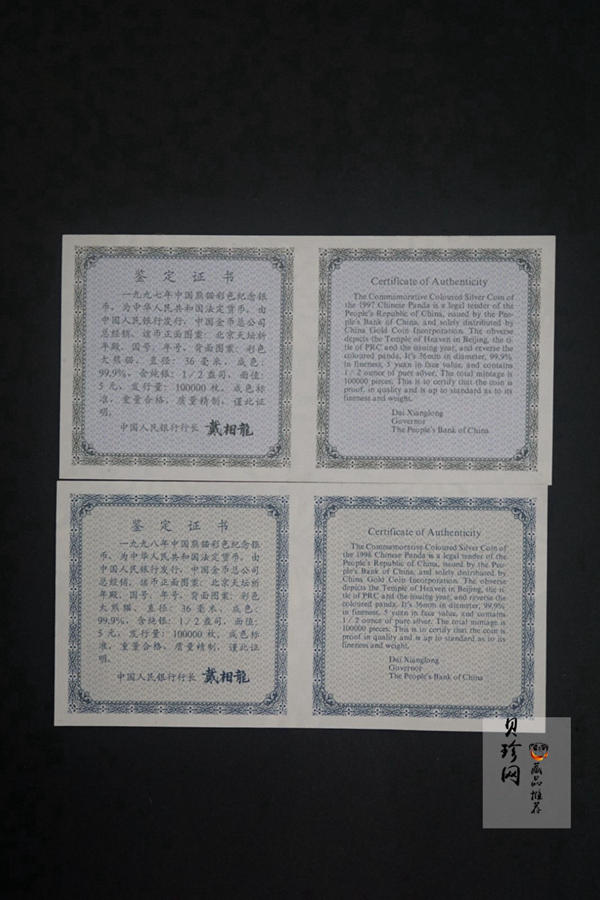 鉴定证书
一九九七年中国熊猫彩色纪念银
币，为中华人民共和国法定货币，由
中国人民银行发行，中国金币总公司
总经销。该币正面图案：北京天坛祈
年殿，国号，年号，背面图案：彩色
大熊猫，直径：36毫米，成色：
99.9%，含纯银：1/2盎司，面值：
5元，发行量：100000枚，成色标
准，重量合格，质量精制，谨此证
明。
中国人民银行行长 戴相龍
Certificate of Authenticity
The Commemorative Coloured Silver Coin of
the 1997 Chinese Panda is a legal tender of the
People's Republic of China, issued by the Peo-
ple's Bank of China, and solely distributed by
China Gold Coin Incorporation. The obverse
depicts the Temple of Heaven in Beijing, the ti-
tle of PRC and the issuing year, and reverse the
coloured panda. It's 36mm in diameter, 99.9%
in fineness, 5 yuan in face value, and contains
1/2 ounce of pure silver. The total mintage is
100000 pieces. This is to certify that the coin is
proof, in quality and is up to standard as to its
fineness and weight.
Dai Xianglong
Governor
The People's Bank of China
鉴定证书
一九九八年中国熊猫彩色纪念银
币，为中华人民共和国法定货币，由
中国人民银行发行，中国金币总公司
总经销，该币正面图案：北京天坛祈
年殿，国号，年号，背面图案：彩色
大熊猫，直径：36毫米，成色：
99.9%，含纯银：1/2盎司，面值：
5元，发行量：100000枚，成色标
准，重量合格，质量精制，谨此证
明。
中国人民银行行长 戴相龍
Certificate of Authenticity
The Commemorative Coloured Silver Coin of
the 1998 Chinese Panda is a legal tender of the
People's Republic of China, issued by the Peo-
ple's Bank of China, and solely distributed by
China Gold Coin Incorporation. The obverse
depicts the Temple of Heaven in Beijing, the ti-
tle of PRC and the issuing year, and reverse the
coloured panda. It's 36mm in diameter, 99.9%
in fineness, 5 yuan in face value, and contains
1/2 ounce of pure silver. The total mintage is
100000 pieces. This is to certify that the coin is
proof in quality and is up to standard as to its
fineness and weight.
Dai Xianglong
Governor
The People's Bank of China
贝珍网
藏品推荐